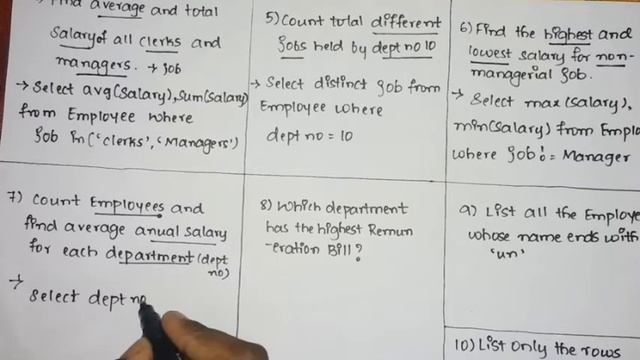 4) Find average and total
Salary of all clerks and
managers. → job
→ Select avg(salary), Sum(salary)
from Employee where
Job In('clerks', 'Managers')
5) Count total different
Jobs held by dept no 10
→ Select distinct Job from
Employee where
dept no = 10
6) Find the highest and
lowest salary for non-
managerial job.
→ Select max(salary),
min(salary) from Emplo
where job != Manager
7) Count Employees and
find average anual salary
for each department (dept
no)
→ Select dept no
8) Which department
has the highest Remun
-eration Bill?
9) List all the Employe
whose name ends with
'un'
10) List only the rows